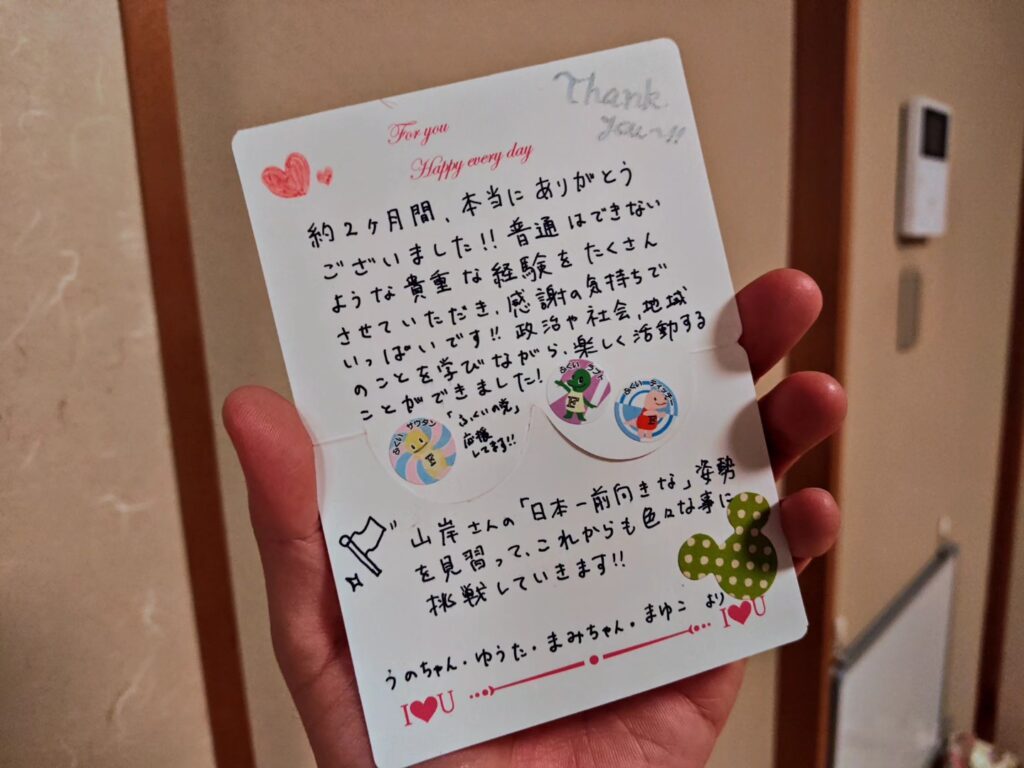 Thank
you〜!!
For you
Happy every day
約2ヶ月間、本当にありがとう
ございました!! 普通はできない
ような貴重な経験をたくさん
させていただき、感謝の気持ちで
いっぱいです!! 政治や社会、地域
のことを学びながら、楽しく活動する
ことができました!
ふくい ラプト
ふくい ティッチー
ふくい サウタン
「ふくいの党」
応援
してます!!
山岸さんの「日本一前向きな」姿勢
を見習って、これからも色々な事に
挑戦していきます!!
うのちゃん・ゆうた・まみちゃん・まゆこ より
I♥U
I♥U